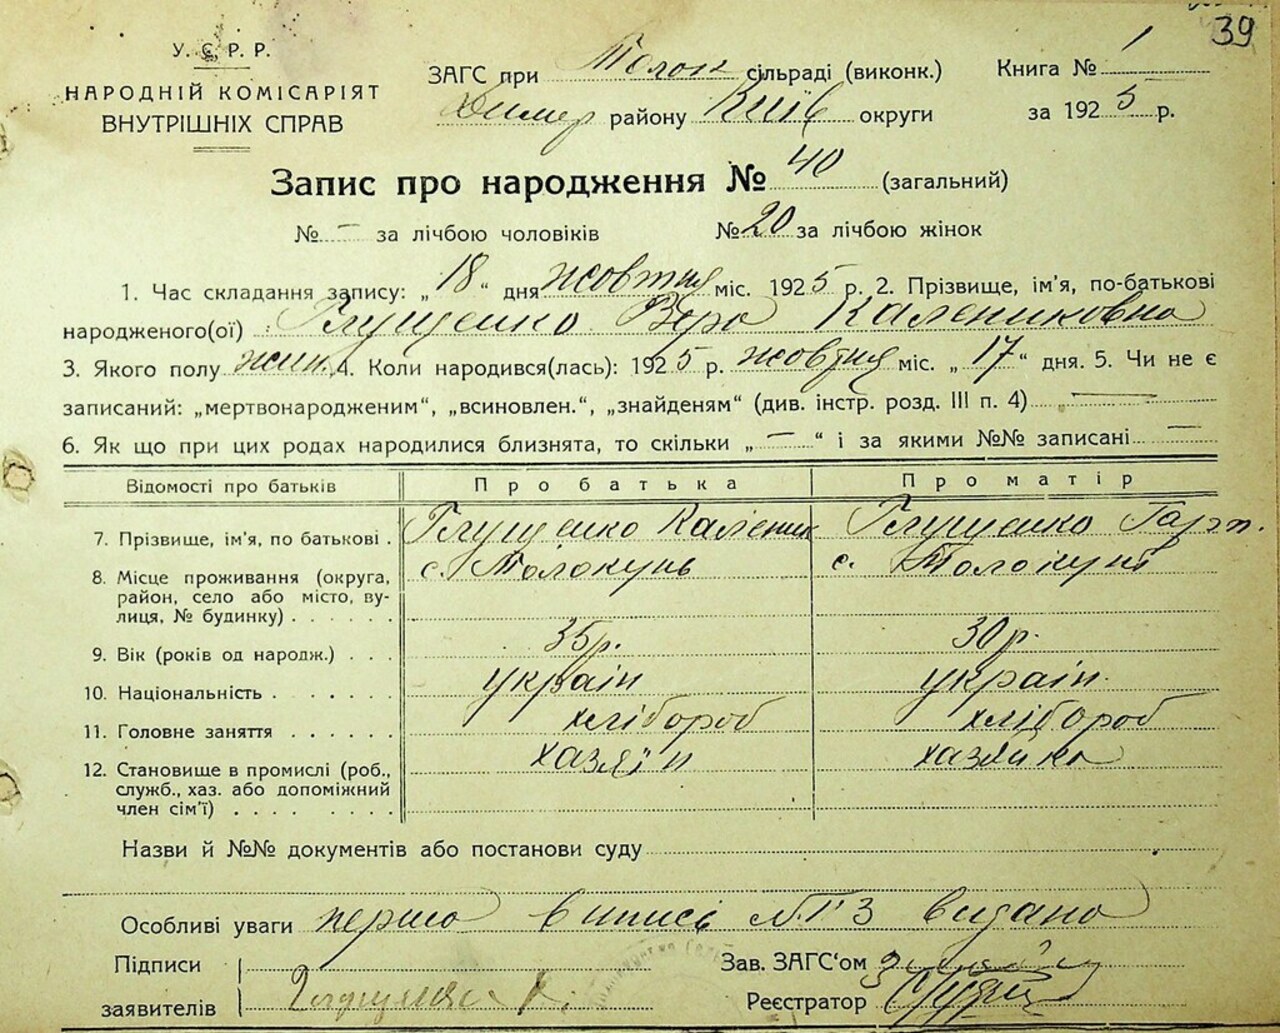 39
У. С. Р. Р.
НАРОДНІЙ КОМІСАРІЯТ
ВНУТРІШНІХ СПРАВ
ЗАГС при Толок сільраді (виконк.) Книга № 1
Димер району Київ округи за 1925 р.
Запис про народження № 40 (загальний)
№ — за лічбою чоловіків № 20 за лічбою жінок
1. Час складання запису: „18“ дня жовтня міс. 1925 р. 2. Прізвище, ім'я, по-батькові
народженого(ої) Глущенко Вера Калениковна
3. Якого полу жин. 4. Коли народився(лась): 1925 р. жовтня міс. „17“ дня. 5. Чи не є
записаний: „мертвонародженим“, „всиновлен.“, „знайденям“ (див. інстр. розд. III п. 4) —
6. Як що при цих родах народилися близнята, то скільки „—“ і за якими №№ записані —
Відомості про батьків Про батька Про матір
7. Прізвище, ім'я, по батькові . Глущенко Каленик Глущенко Гарп.
8. Місце проживання (округа, с. Толокунь с. Толокунь
район, село або місто, ву-
лиця, № будинку) . . . . . .
9. Вік (років од народж.) . . . 35р. 30р.
10. Національність . . . . . . . україн україн.
11. Головне заняття . . . . . . хлібороб хлібороб
12. Становище в промислі (роб., хазяїн хазяйка
служб., хаз. або допоміжний
член сім'ї) . . . . . . . . .
Назви й №№ документів або постанови суду
Особливі уваги перша випись № 3 видана
Підписи Зав. ЗАГС'ом
заявителів Реєстратор